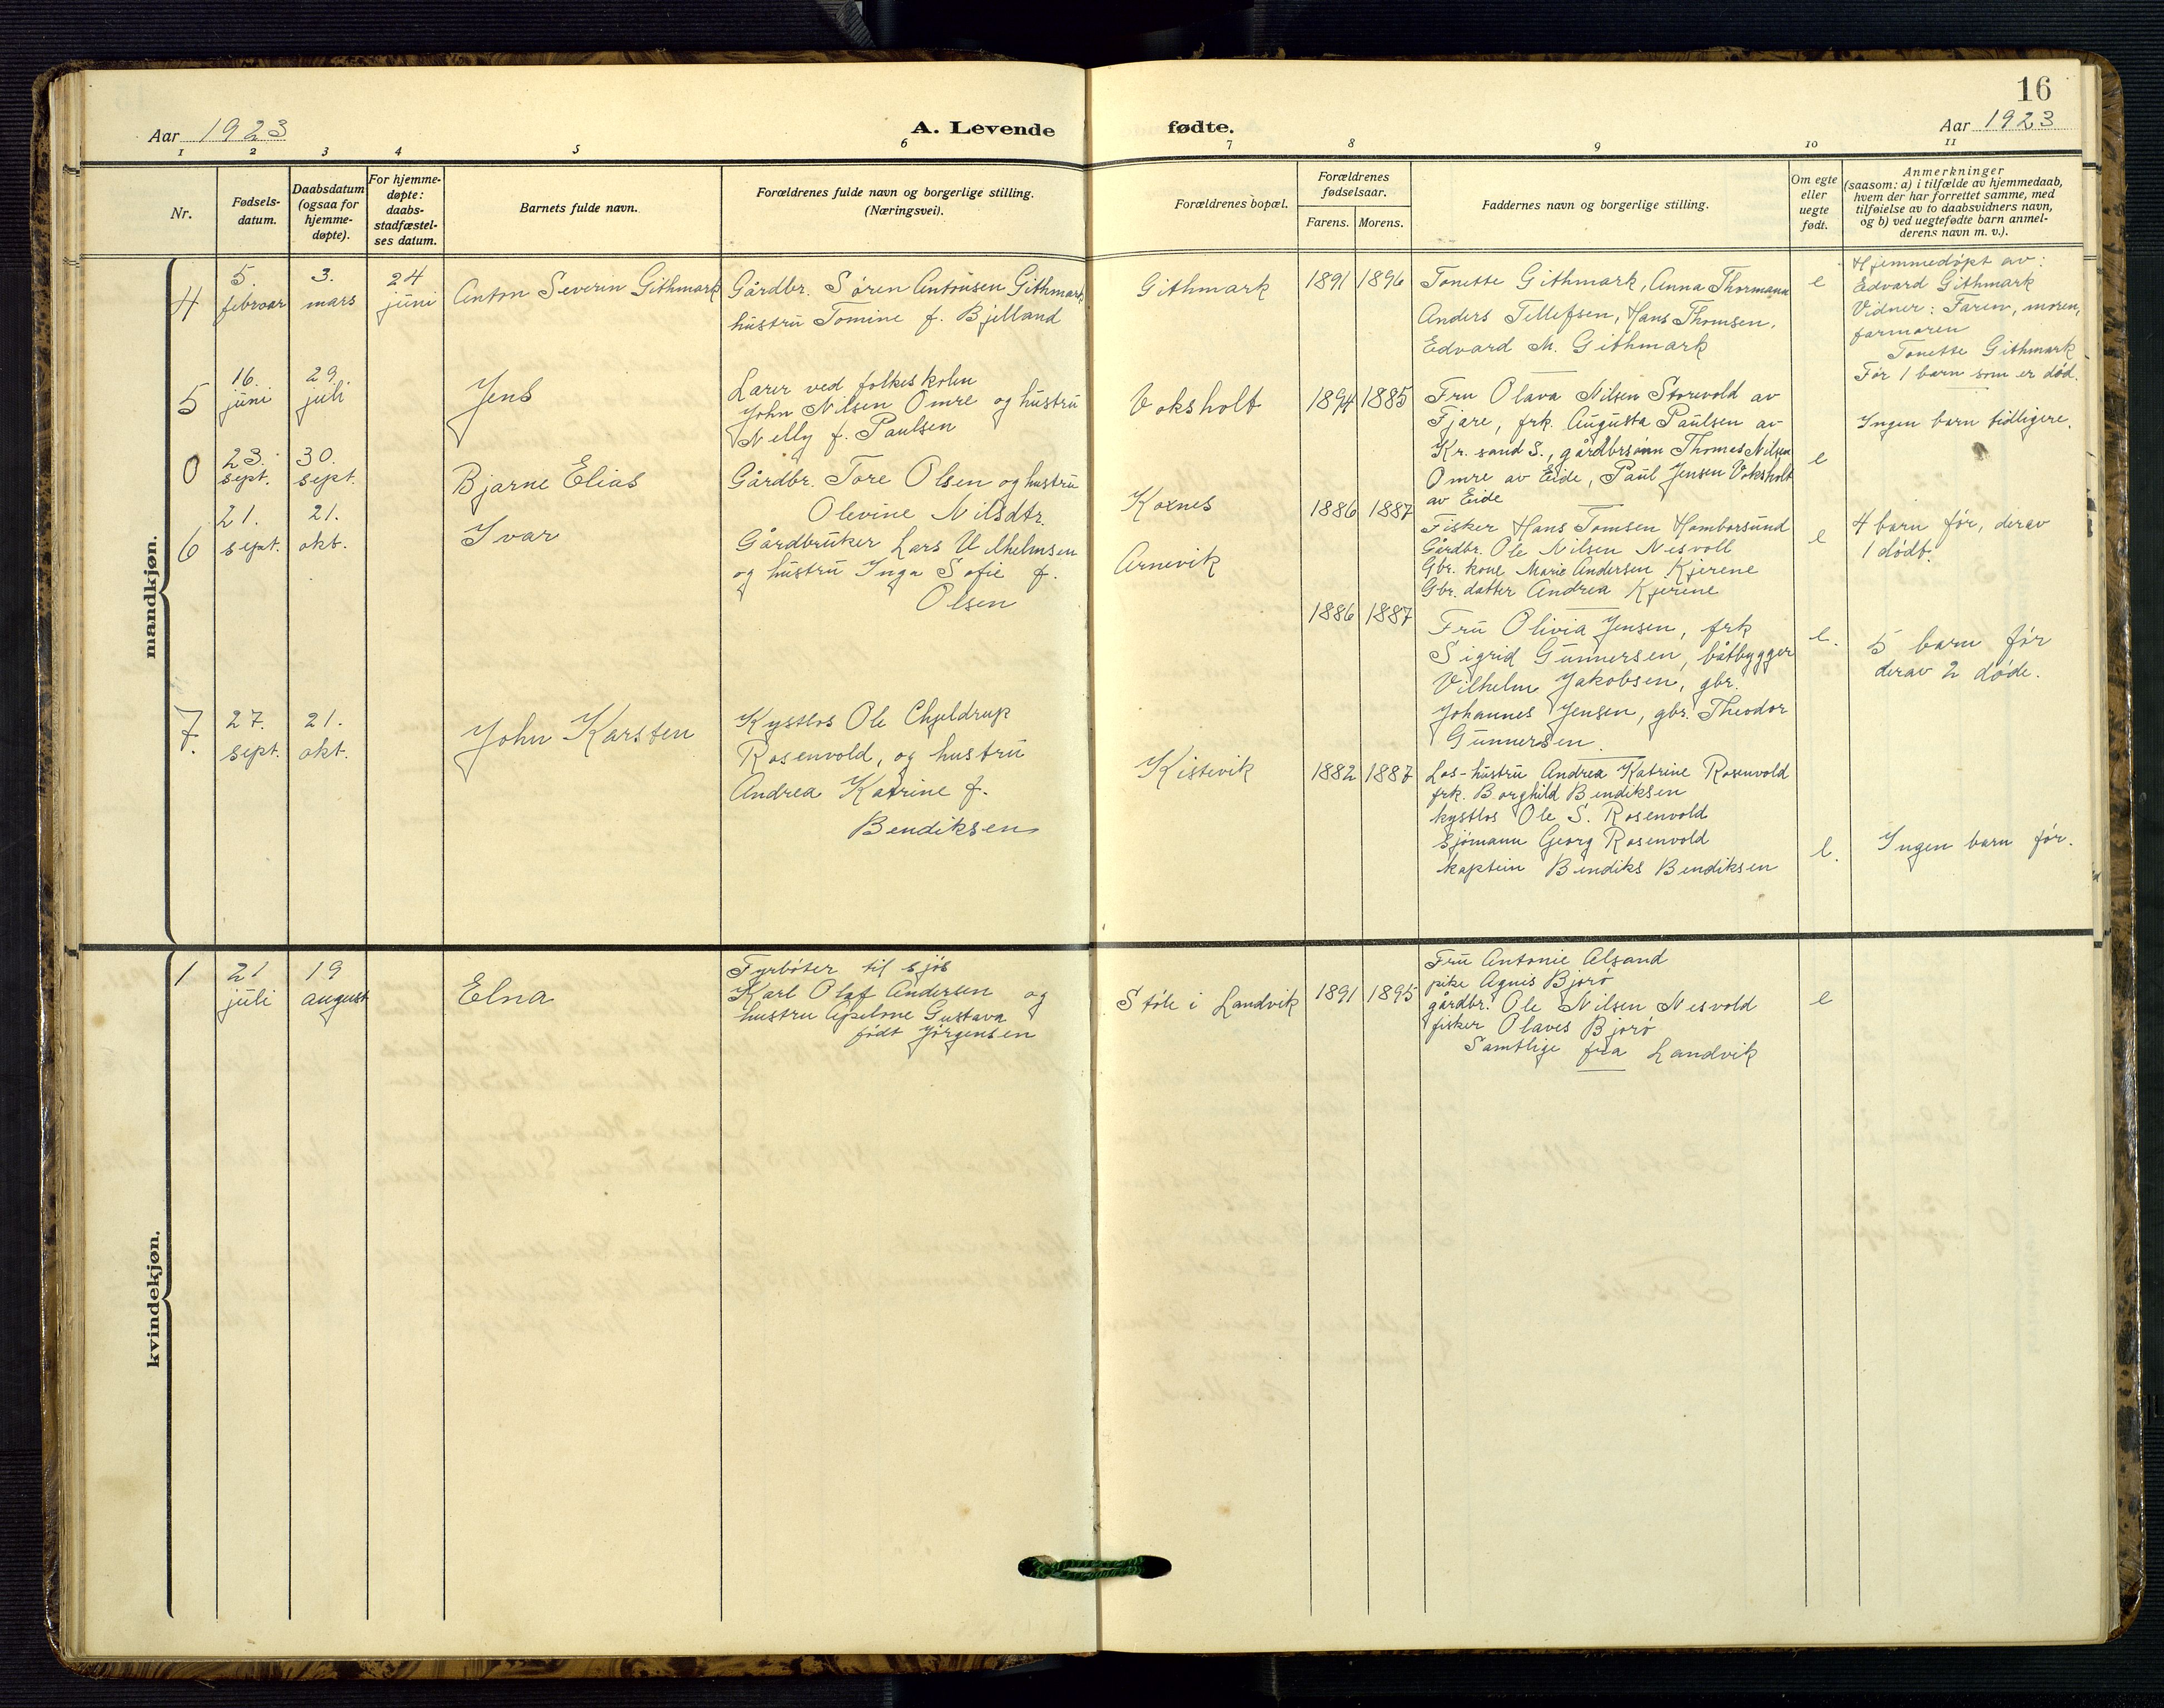 16
Aar 1923
A. Levende
fødte.
Aar 1923
1 2 3 4 5 6 7 8 9 10 11
Nr.
Fødsels-
datum.
Daabsdatum
(ogsaa for
hjemme-
døpte).
For hjemme-
døpte:
daabs-
stadfæstel-
ses datum.
Barnets fulde navn.
Forældrenes fulde navn og borgerlige stilling.
(Næringsvei).
Forældrenes bopæl.
Forældrenes
fødselsaar.
Farens. Morens.
Faddernes navn og borgerlige stilling.
Om egte
eller
uegte
født.
Anmerkninger
(saasom: a) i tilfælde av hjemmedaab,
hvem der har forrettet samme, med
tilføielse av to daabsvidners navn,
og b) ved uegtefødte barn anmel-
derens navn m. v.).
mandkjøn.
4
5.
februar
3.
mars
24
juni
Anton Severin Githmark
Gårdbr. Søren Antonsen Githmark
hustru Tomine f. Bjelland
Githmark
1891 1896
Tonette Githmark, Anna Thormann
Anders Tellefsen, Hans Thomsen,
Edvard M. Githmark
e
Hjemmedøpt av:
Edvard Githmark
Vidner: Faren, moren,
farmoren
Tonette Githmark
Før 1 barn som er død.
5
16.
juni
29.
juli
Jens
Lærer ved folkeskolen
John Nilsen Omre og hustru
Nelly f. Paulsen
Voksholt
1894 1885
Fru Olava Nilsen Storevold av
Fjære, frk. Augusta Paulsen av
Kr. sand S., gårdbrsønn Thomas Nilsen
Omre av Eide, Paul Jensen Voksholt
av Eide
e
Ingen barn tidligere.
0
23.
sept.
30.
sept.
Bjarne Elias
Gårdbr. Tore Olsen og hustru
Olevine Nilsdtr.
Kornes
1886 1887
Fisker Hans Tomsen Homborsund
Gårdbr. Ole Nilsen Nesvoll
Gbr. kone Marie Andersen Kjerene
Gbr. datter Andrea Kjerene
e
4 barn før, derav
1 dødf.
6
21.
sept.
21.
okt.
Ivar
Gårdbruker Lars Vilhelmsen
og hustru Inga Sofie f.
Olsen
Arnevik
1886 1887
Fru Olivia Jensen, frk
Sigrid Gunnersen, båtbygger
Vilhelm Jakobsen, gbr.
Johannes Jensen, gbr. Theodor
Gunnersen.
e.
5 barn før
derav 2 døde.
7.
27.
sept.
21.
okt.
John Karsten
Kystlos Ole Chjeldrup
Rosenvold, og hustru
Andrea Katrine f.
Bendiksen
Kistevik
1882 1887
Los-hustru Andrea Katrine Rosenvold
frk. Borghild Bendiksen
kystlos Ole S. Rosenvold
Sjømann Georg Rosenvold
kaptein Bendiks Bendiksen
e.
Ingen barn før.
kvindekjøn.
1
21
juli
19
august
Elna
Fyrbøter til sjøs
Karl Olaf Andersen og
hustru Gustava
født Jørgensen
Støle i Landvik
1891 1895
Fru Antonie Alsand
pike Agnis Bjorø
gårdbr. Ole Nilsen Nesvold
fisker Olaves Bjorø
Samtlige fra Landvik
e